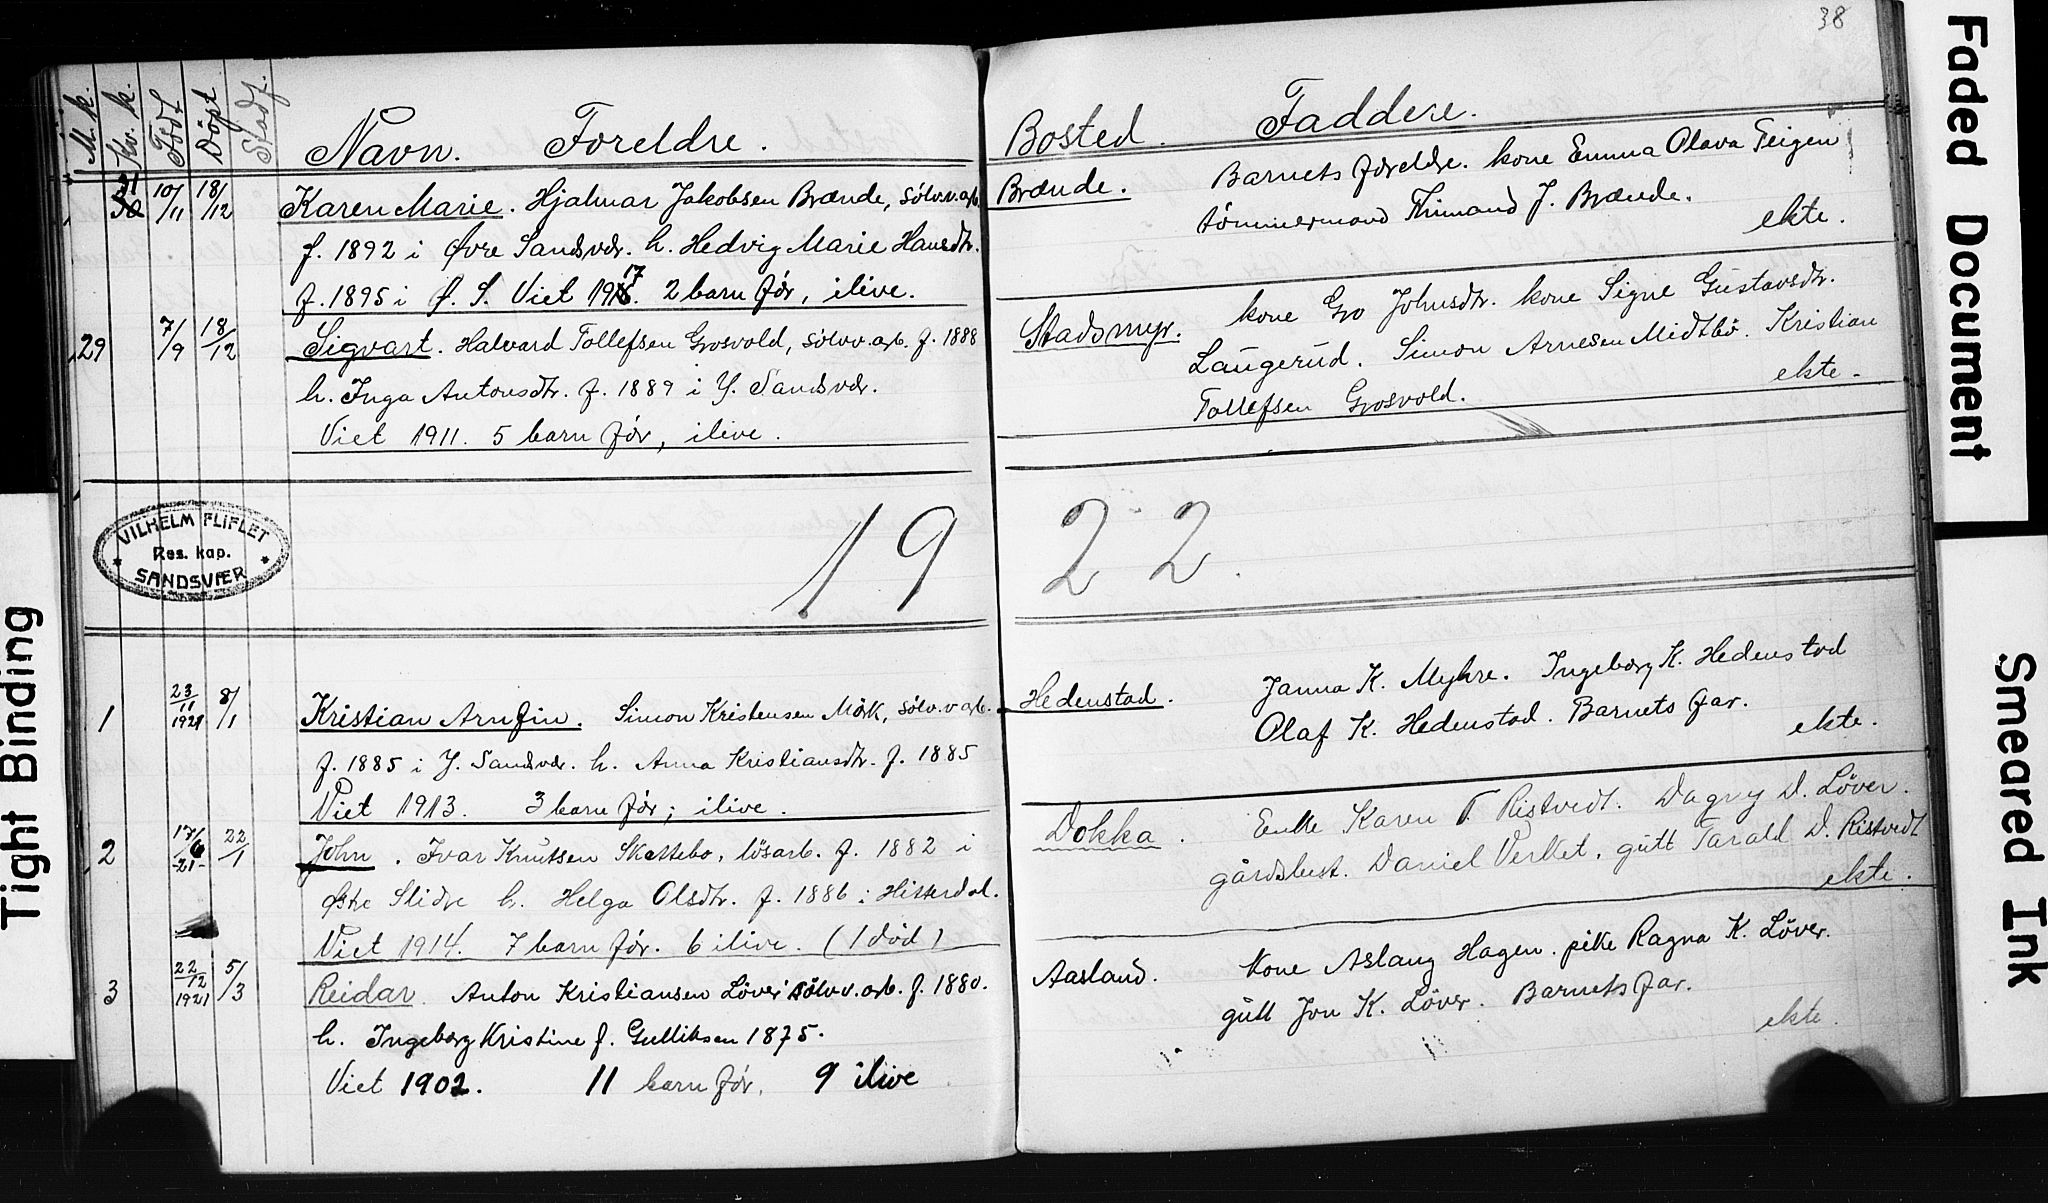 38
M. k. Kv. k. Född Döpt Stadf.
Navn. Foreldre.
Bosted. Faddere.
31 30 10/11 18/12 Karen Marie. Hjalmar Jakobsen Brænde, sølvv.arb.
f. 1892 i Øvre Sandsvær. h. Hedvig Marie Hansdtr.
f. 1895 i Ø. S. Viet 1917. 2 barn før, ilive.
Brænde. Barnets foreldre. kone Emma Olava Teigen
tømmermand Thimand J. Brænde.
ekte.
29 7/9 18/12 Sigvart. Halvard Tollefsen Grosvold, sølvv.arb. f. 1888
h. Inga Antonsdtr. f. 1889 i Y. Sandsvær.
Viet 1911. 5 barn før, ilive.
Stadsmyr. kone Gro Johnsdtr. kone Signe Gustavsdtr.
Laugerud. Simon Arnesen Midtbö. Kristian
Tollefsen Grosvold.
ekte.
VILHELM FLIFLET
Res. kap.
SANDSVÆR
19 22.
1 23/11 1921 8/1 Kristian Arnfin. Simon Kristensen Mörk, sølvv.arb.
f. 1885 i Y. Sandsvær. h. Anna Kristiansdtr. f. 1885
Viet 1913. 3 barn før; ilive.
Hedenstad. Janna K. Myhre. Ingeborg K. Hedenstad
Olaf K. Hedenstad. Barnets far.
ekte.
2 17/6 -21- 22/1 John. Ivar Knutsen Skattebo, lösarb. f. 1882 i
Østre Slidre h. Helga Olsdtr. f. 1886 i Hitterdal.
Viet 1914. 7 barn før. 6 ilive. (1 død)
Dokka. Enke Karen T. Ristvedt. Dagny D. Löver.
gårdsbest. Daniel Verket, gutt Tarald D. Ristvedt
ekte.
3 22/12 1921 5/3 Reidar. Anton Kristiansen Löver sølvv.arb. f. 1880.
h. Ingeborg Kristine f. Gulliksen 1875.
Viet 1902. 11 barn før. 9 ilive
Aasland. kone Aslaug Hagen. pike Ragna K. Löver.
gutt Jon K. Löver. Barnets far.
ekte.
Tight Binding
Faded Document
Smeared Ink